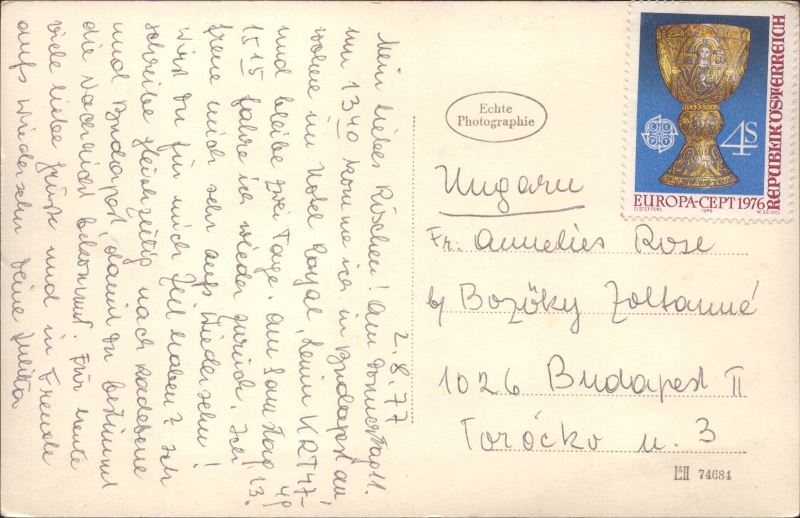 2.8.77
Mein liebes Rischen! Am Donnerstag 11.
um 13 40 komme ich in Budapest an,
wohne im Hotel Royal, Lenin KRT 47-
49
und bleibe zwei Tage. Am Samstag 13.
15 15 fahre ich wieder zurück. Ich
freue mich sehr aufs Wiedersehn!
Wirst Du für mich Zeit haben? Ich
schreibe gleichzeitig nach
und Budapest, damit Du bestimmt
die Nachricht bekommst. Für heute
viele liebe Grüße und in Freude
aufs Wiedersehn Deine Julitta
Echte
Photographie
EUROPA-CEPT 1976
REPUBLIK ÖSTERREICH
4S
CEPT
1976
Ungarn
Fr. Annelies Rose
b/ Bozóky Zoltánné
1026 Budapest II
Toróckó u. 3
74684